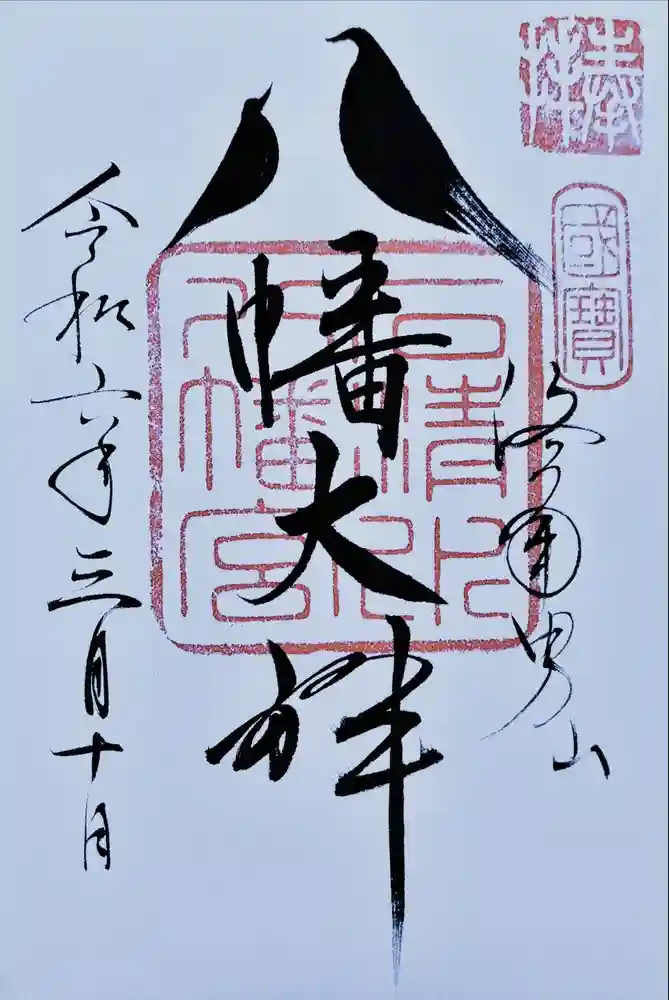 國寶
洛南男山
八幡大神
石清水八幡宮
令和六年三月十日